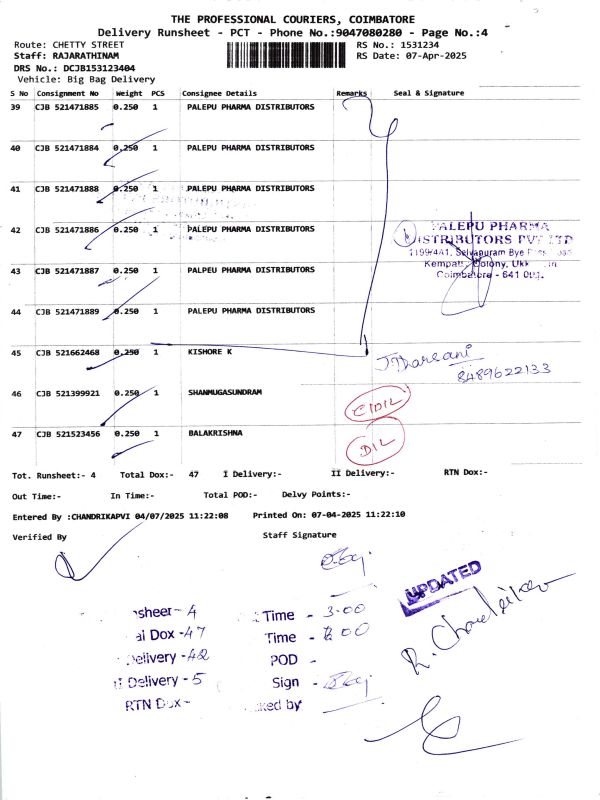 THE PROFESSIONAL COURIERS, COIMBATORE
Delivery Runsheet - PCT - Phone No.:9047080280 - Page No.:4
Route: CHETTY STREET
RS No.: 1531234
Staff: RAJARATHINAM
RS Date: 07-Apr-2025
DRS No.: DCJB153123404
Vehicle: Big Bag Delivery
S No Consignment No Weight PCS Consignee Details Remarks Seal & Signature
39 CJB 521471885 0.250 1 PALEPU PHARMA DISTRIBUTORS
40 CJB 521471884 0.250 1 PALEPU PHARMA DISTRIBUTORS
41 CJB 521471888 0.250 1 PALEPU PHARMA DISTRIBUTORS
42 CJB 521471886 0.250 1 PALEPU PHARMA DISTRIBUTORS
PALEPU PHARMA
DISTRIBUTORS PVT LTD
1199/4A1, Selvapuram Bye
Kempatti Colony, Ukk
Coimbatore - 641 001.
43 CJB 521471887 0.250 1 PALPEU PHARMA DISTRIBUTORS
44 CJB 521471889 0.250 1 PALEPU PHARMA DISTRIBUTORS
45 CJB 521662468 0.250 1 KISHORE K
8489622133
46 CJB 521399921 0.250 1 SHANMUGASUNDRAM
47 CJB 521523456 0.250 1 BALAKRISHNA
D/L
Tot. Runsheet:- 4 Total Dox:- 47 I Delivery:- II Delivery:- RTN Dox:-
Out Time:- In Time:- Total POD:- Delvy Points:-
Entered By :CHANDRIKAPVI 04/07/2025 11:22:08 Printed On: 07-04-2025 11:22:10
Verified By Staff Signature
UPDATED
nsheet- 4 Time - 3:00
al Dox -47 Time -
Delivery -42 POD -
Delivery - 5 Sign -
RTN Dox- ked by